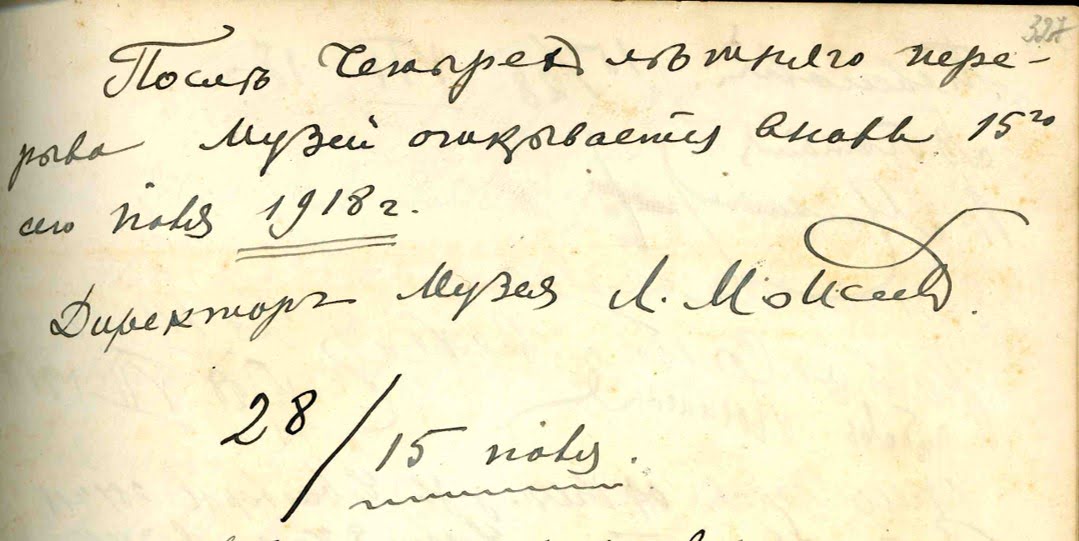 397
Послѣ Четырехлѣтняго пере-
рыва Музей открывается вновь 15го
сего iюля 1918 г.
Директоръ Музея Л. Моисеевъ.
28/15 iюля.